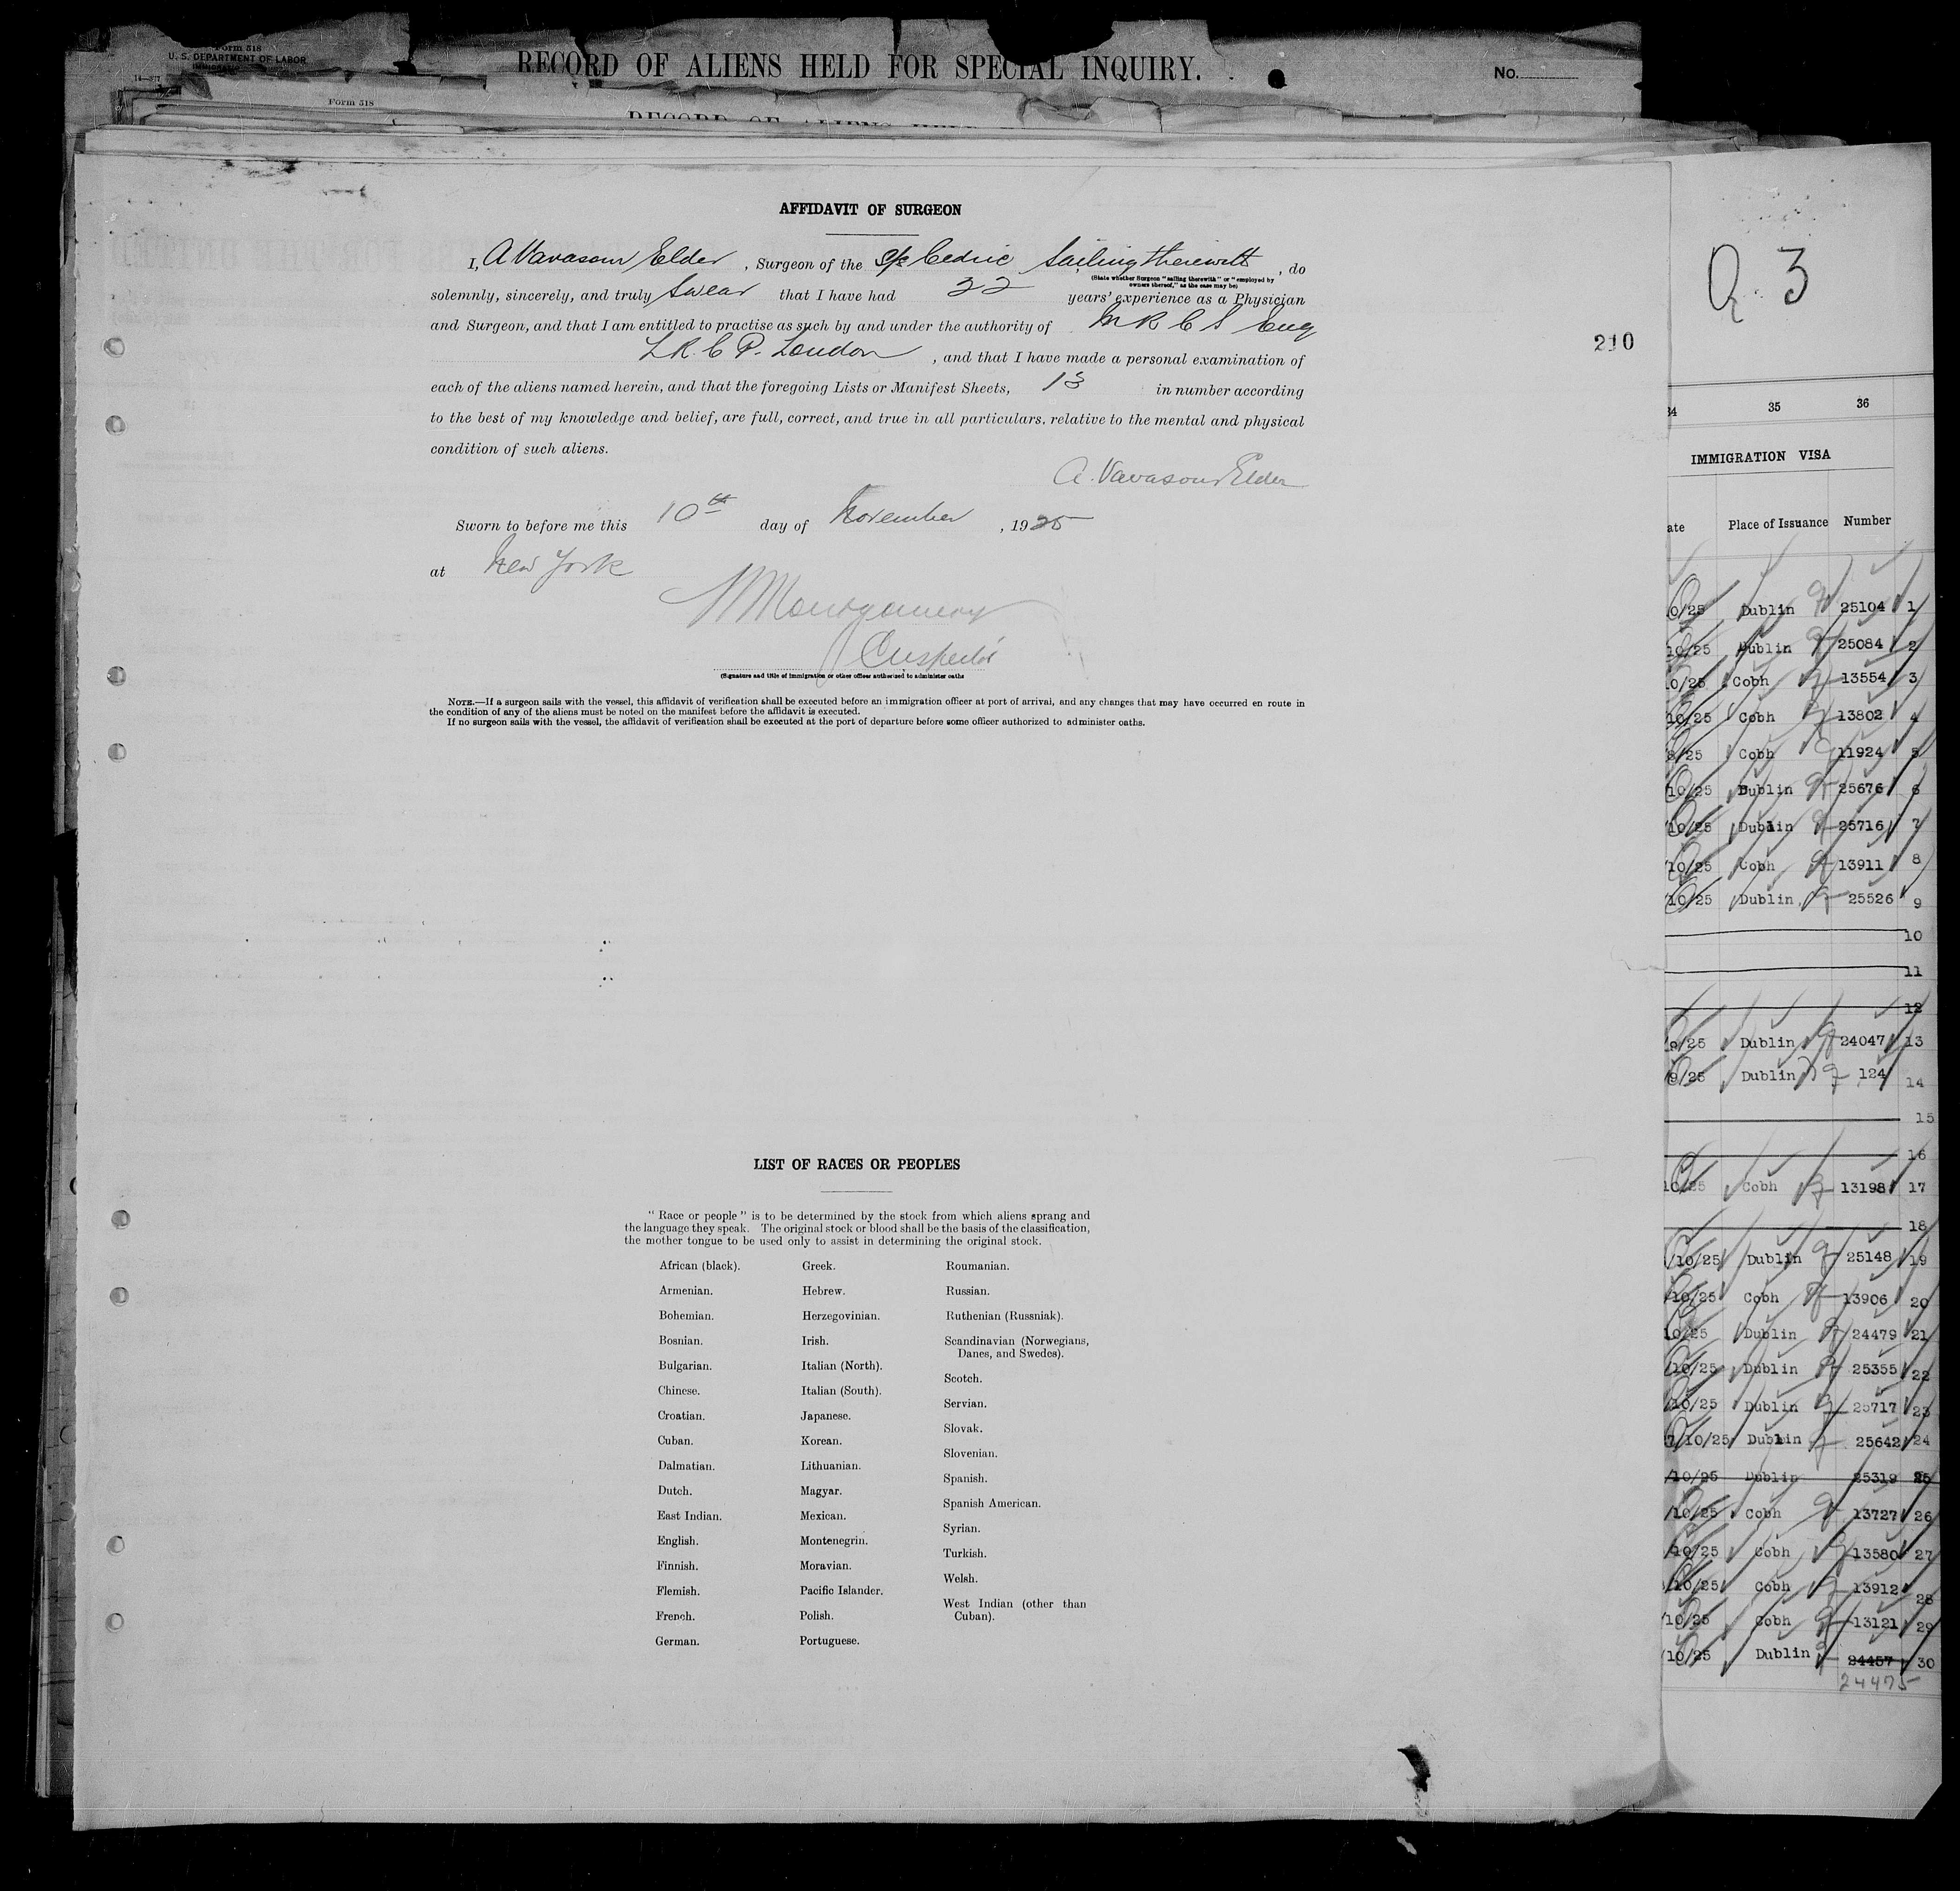 Form 518
U. S. DEPARTMENT OF LABOR
RECORD OF ALIENS HELD FOR SPECIAL INQUIRY.
No.
Form 518
RECORD OF ALIENS HELD
AFFIDAVIT OF SURGEON
I, A Vavasour Elder, Surgeon of the S/S Cedric Sailing therewith, do
(State whether Surgeon "sailing therewith" or "employed by
owners thereof," as the case may be)
solemnly, sincerely, and truly swear that I have had 22 years' experience as a Physician
and Surgeon, and that I am entitled to practise as such by and under the authority of M R C S Eng
L R. C P. London, and that I have made a personal examination of
each of the aliens named herein, and that the foregoing Lists or Manifest Sheets, 13 in number according
to the best of my knowledge and belief, are full, correct, and true in all particulars, relative to the mental and physical
condition of such aliens.
A. Vavasour Elder
Sworn to before me this 10th day of November, 1925
at New York
Montgomery
Inspector
(Signature and title of immigration or other officer authorized to administer oaths
NOTE.—If a surgeon sails with the vessel, this affidavit of verification shall be executed before an immigration officer at port of arrival, and any changes that may have occurred en route in
the condition of any of the aliens must be noted on the manifest before the affidavit is executed.
If no surgeon sails with the vessel, the affidavit of verification shall be executed at the port of departure before some officer authorized to administer oaths.
210
LIST OF RACES OR PEOPLES
"Race or people" is to be determined by the stock from which aliens sprang and
the language they speak. The original stock or blood shall be the basis of the classification,
the mother tongue to be used only to assist in determining the original stock.
African (black).
Armenian.
Bohemian.
Bosnian.
Bulgarian.
Chinese.
Croatian.
Cuban.
Dalmatian.
Dutch.
East Indian.
English.
Finnish.
Flemish.
French.
German.
Greek.
Hebrew.
Herzegovinian.
Irish.
Italian (North).
Italian (South).
Japanese.
Korean.
Lithuanian.
Magyar.
Mexican.
Montenegrin.
Moravian.
Pacific Islander.
Polish.
Portuguese.
Roumanian.
Russian.
Ruthenian (Russniak).
Scandinavian (Norwegians,
Danes, and Swedes).
Scotch.
Servian.
Slovak.
Slovenian.
Spanish.
Spanish American.
Syrian.
Turkish.
Welsh.
West Indian (other than
Cuban).
Q. 3
34 35 36
IMMIGRATION VISA
ate Place of Issuance Number
0/25 Dublin 25104 1
10/25 Dublin 25084 2
10/25 Cobh 13554 3
10/25 Cobh 13802 4
8/25 Cobh 11924 5
10/25 Dublin 25676 6
/10/25 Dublin 25716 7
/10/25 Cobh 13911 8
/10/25 Dublin 25526 9
10
11
12
/9/25 Dublin 24047 13
/9/25 Dublin 124 14
15
16
10/25 Cobh 13198 17
18
/10/25 Dublin 25148 19
/10/25 Cobh 13906 20
10/25 Dublin 24479 21
/10/25 Dublin 25355 22
/10/25 Dublin 25717 23
7/10/25 Dublin 25642 24
/10/25 Dublin 25319 25
/10/25 Cobh 13727 26
/10/25 Cobh 13580 27
/10/25 Cobh 13912 28
/10/25 Cobh 13121 29
/10/25 Dublin 24457 30
24475